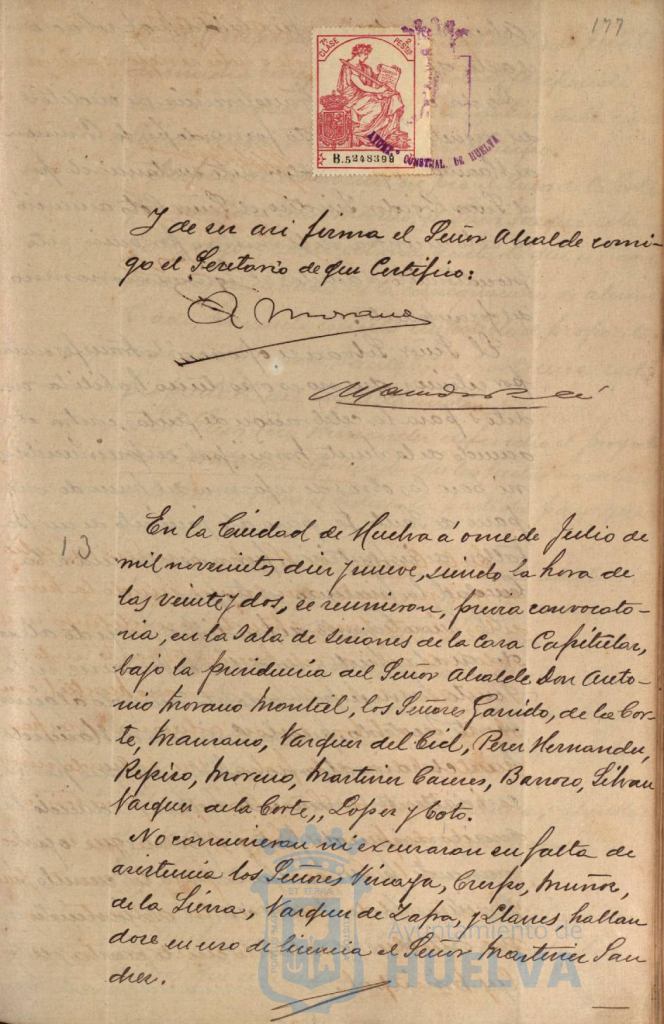 177
7ª CLASE 2 PESTAS
B.5248399
AYUNTº CONSTNAL. DE HUELVA
Y de ser asi firma el Señor Alcalde conmi-
go el Secretario de que Certifico:
A. Morano
13
En la Ciudad de Huelva á once de Julio de
mil novecientos diez y nueve, siendo la hora de
las veinte y dos, se reunieron, previa convocato-
ria, en la Sala de sesiones de la Casa Capitular,
bajo la presidencia del Señor Alcalde Don Anto-
nio Morano Montiel, los Señores Garrido, de la Cor-
te, Manzano, Vazquez del Cid, Perez Hernandez,
Repiso, Moreno, Martinez Caceres, Barroso, Silvan
Vazquez de la Corte,, Lopez y Coto.
No concurrieron ni excusaron su falta de
asistencia los Señores Vizcaya, Crespo, Muñoz,
de la Sierra, Vazquez de Zafra, y Llanes, hallan
dose en uso de licencia el Señor Martinez San
chez.
Ayuntamiento de
HUELVA